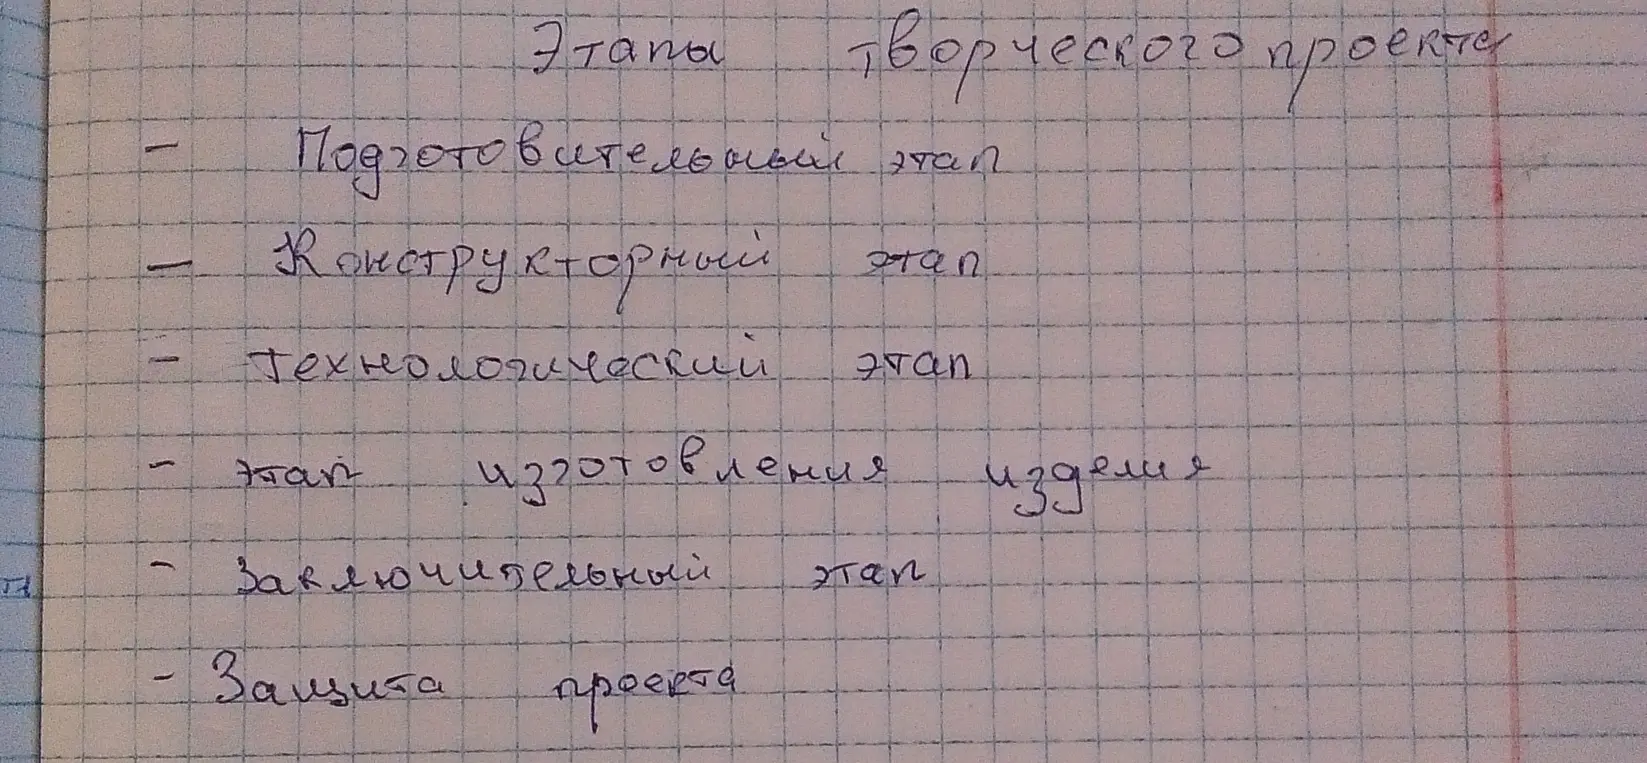 Этапы творческого проекта
- Подготовительный этап
- Конструкторный этап
- технологический этап
- этап изготовления изделия
- Заключительный этап
- Защита проекта